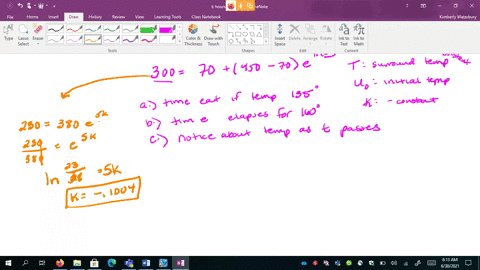 Kimberly Waterbury
File Home Insert Draw View Help
History Review View Learning Tools Class Notebook
Type
Lasso Select
Insert Space
Eraser
Color & Thickness
Draw with Touch
Shapes
Ink to Text
Ink to Math
Tools
Shapes
Convert
300 = 70 + (450 - 70) e
T: surround temp
U₀ = initial temp
K: - constant
a.) time eat if temp 135°
b.) time elapses for 160°
c.) notice about temp as t passes
230 = 380 e^5k
230/380 = e^5k
ln 23/38 = 5k
K = -.1004
8:13 AM
6/30/2021